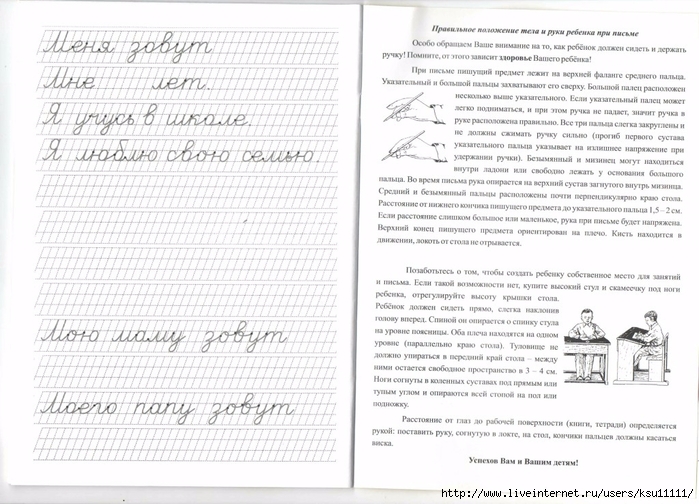 Меня зовут
Мне лет.
Я учусь в школе.
Я люблю свою семью.
Мою маму зовут
Моего папу зовут
Правильное положение тела и руки ребенка при письме
Особо обращаем Ваше внимание на то, как ребёнок должен сидеть и держать
ручку! Помните, от этого зависит здоровье Вашего ребёнка!
При письме пишущий предмет лежит на верхней фаланге среднего пальца.
Указательный и большой пальцы захватывают его сверху. Большой палец расположен
несколько выше указательного. Если указательный палец может
легко подниматься, и при этом ручка не падает, значит ручка в
руке расположена правильно. Все три пальца слегка закруглены и
не должны сжимать ручку сильно (прогиб первого сустава
указательного пальца указывает на излишнее напряжение при
удержании ручки). Безымянный и мизинец могут находиться
внутри ладони или свободно лежать у основания большого
пальца. Во время письма рука опирается на верхний сустав загнутого внутрь мизинца.
Средний и безымянный пальцы расположены почти перпендикулярно краю стола.
Расстояние от нижнего кончика пишущего предмета до указательного пальца 1,5 – 2 см.
Если расстояние слишком большое или маленькое, рука при письме будет напряжена.
Верхний конец пишущего предмета ориентирован на плечо. Кисть находится в
движении, локоть от стола не отрывается.
Позаботьтесь о том, чтобы создать ребенку собственное место для занятий
и письма. Если такой возможности нет, купите высокий стул и скамеечку под ноги
ребенка, отрегулируйте высоту крышки стола.
Ребёнок должен сидеть прямо, слегка наклонив
голову вперед. Спиной он опирается о спинку стула
на уровне поясницы. Оба плеча находятся на одном
уровне (параллельно краю стола). Туловище не
должно упираться в передний край стола – между
ними остается свободное пространство в 3 – 4 см.
Ноги согнуты в коленных суставах под прямым или
тупым углом и опираются всей стопой на пол или
подножку.
Расстояние от глаз до рабочей поверхности (книги, тетради) определяется
рукой: поставить руку, согнутую в локте, на стол, кончики пальцев должны касаться
виска.
Успехов Вам и Вашим детям!
http://www.liveinternet.ru/users/ksu11111/